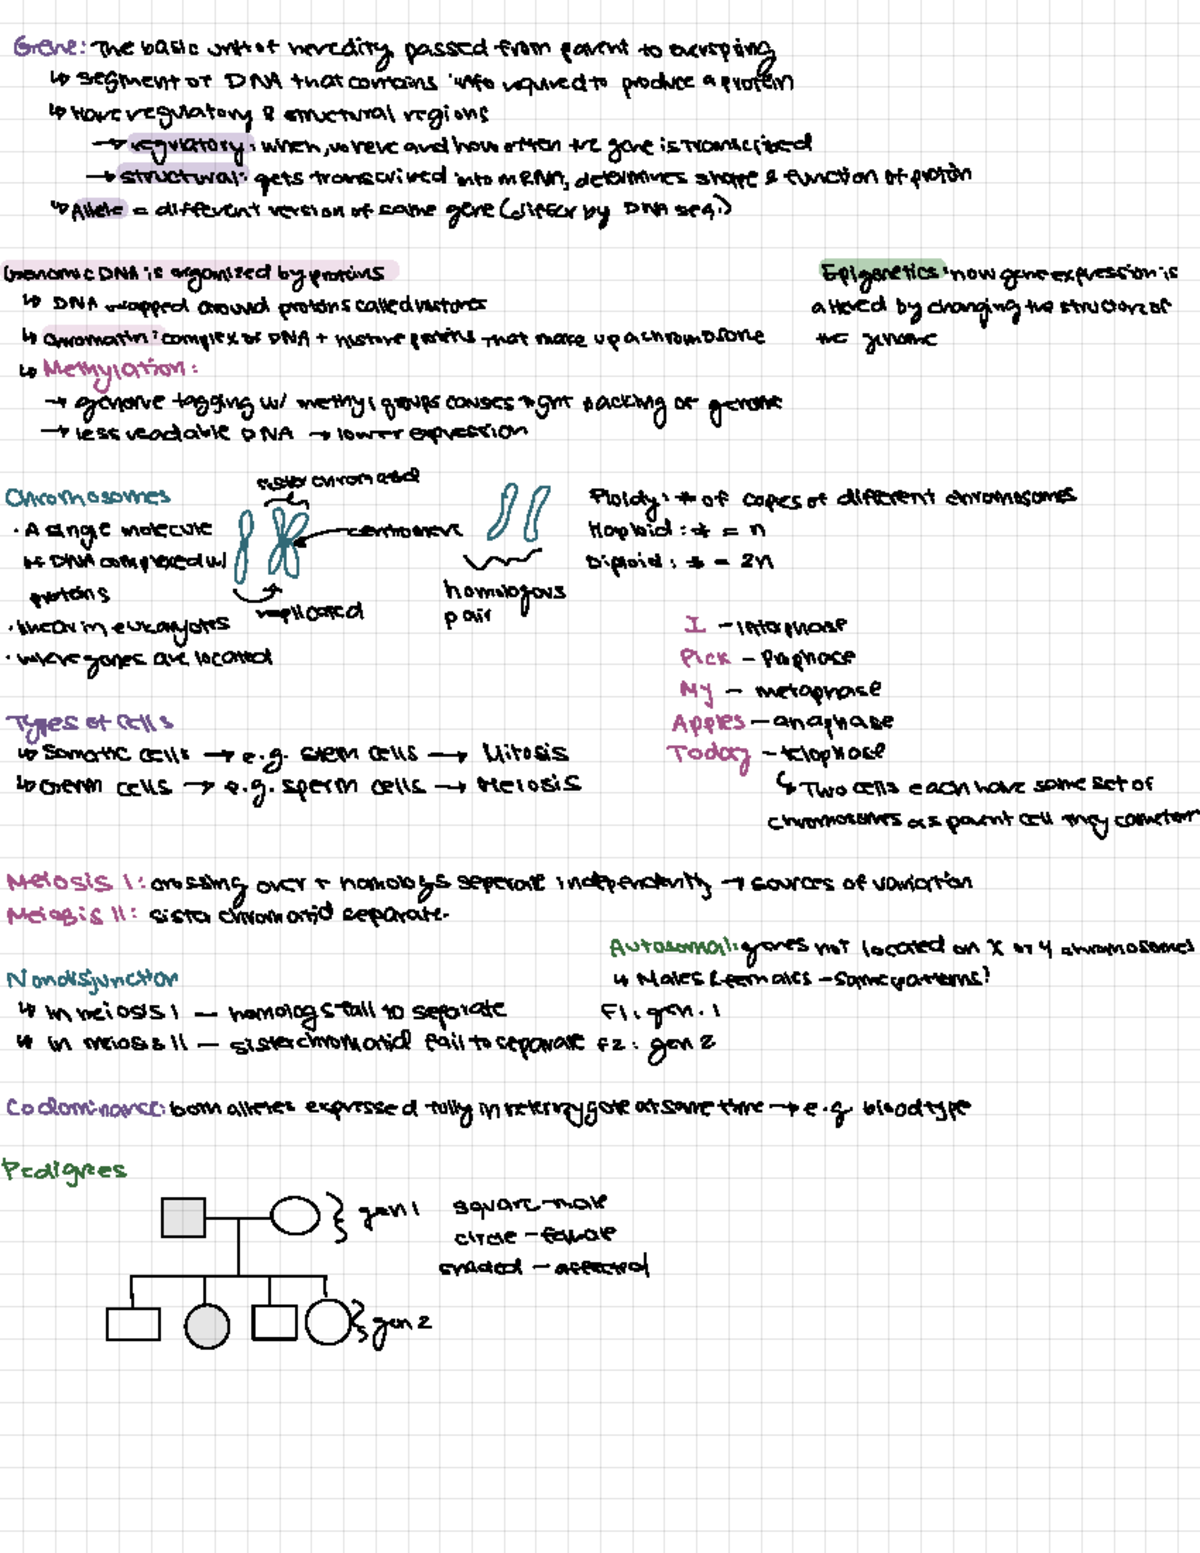 Gene: The basic unit of heredity passed from parent to offspring
↳ segment of DNA that contains info required to produce a protein
↳ Have regulatory & structural regions
→ regulatory: when, where and how often the gene is transcribed
→ structural: gets transcribed into mRNA, determines shape & function of protein
↳ Allele = different version of same gene (differ by DNA seq.)
Genomic DNA is organized by proteins
↳ DNA wrapped around proteins called histones
↳ chromatin: complex of DNA + histone proteins that make up a chromosome
↳ Methylation:
→ genome tagging w/ methyl groups causes tight packing of genome
→ less readable DNA → lower expression
Epigenetics: how gene expression is
altered by changing the structure of
the genome
Chromosomes
· A single molecule
of DNA complexed w/
proteins
· linear in eukaryotes
· where genes are located
sister chromatid
centromere
replicated
homologous
pair
Ploidy: # of copies of different chromosomes
Haploid: # = n
Diploid: # = 2n
I - interphase
Pick - prophase
My - metaphase
Apples - anaphase
Today - telophase
↳ Two cells each have same set of
chromosomes as parent cell they came from
Types of Cells
↳ Somatic cells → e.g. stem cells → Mitosis
↳ Germ cells → e.g. sperm cells → Meiosis
Meiosis I: crossing over + homologs seperate independently → sources of variation
Meiosis II: sister chromatid separate.
Autosomal: genes not located on X or Y chromosomes
↳ Males & females - same patterns!
F1: gen. 1
F2: gen 2
Nondisjunction
↳ in meiosis I - homologs fail to separate
↳ in meiosis II - sister chromatid fail to separate
Codominance: both alleles expressed fully in heterozygote at same time → e.g. blood type
Pedigrees
gen 1
square - male
circle - female
shaded - affected
gen 2